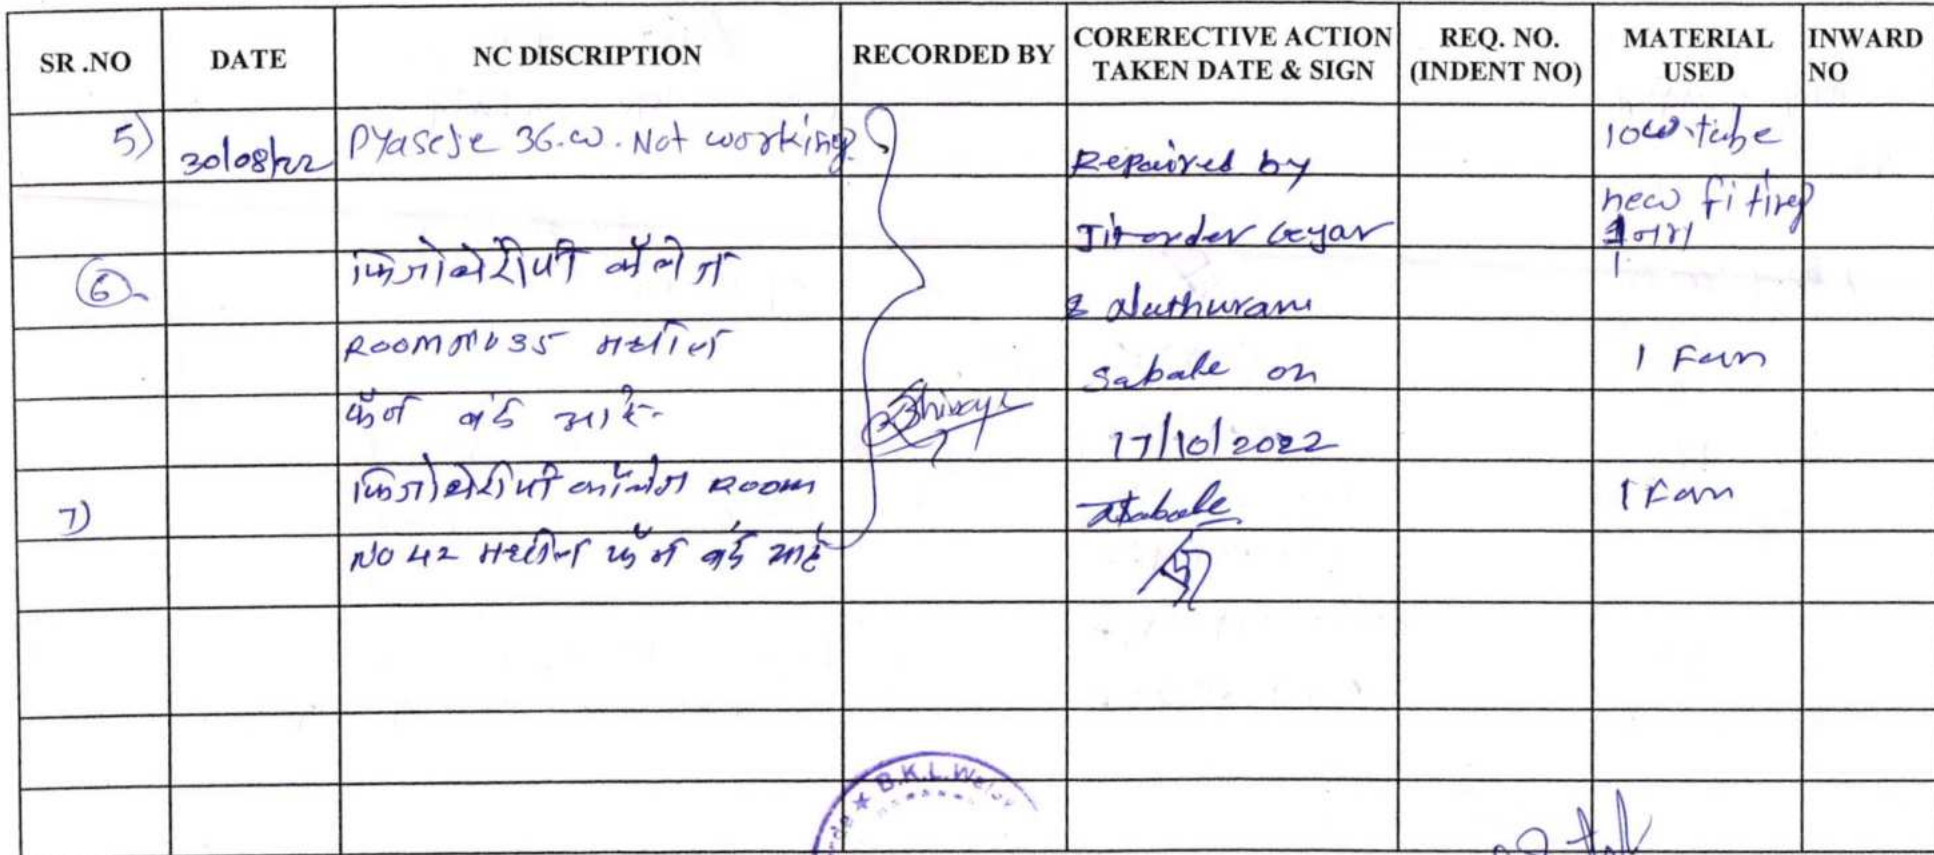 SR.NO DATE NC DISCRIPTION RECORDED BY CORERECTIVE ACTION TAKEN DATE & SIGN REQ. NO. (INDENT NO) MATERIAL USED INWARD NO
5) 30/08/22 36.w. Not working Repaired by 10w.tube
new
6) फिजोथेरीपी कॅलेज
Room 35 मधील Sabale on 1 Fan
फॅन बंद आहे.
17/10/2022
7) फिजोथेरीपी कॉलेज Room 1 Fan
NO 42 मधील फॅन बंद आहे
B.K.L.